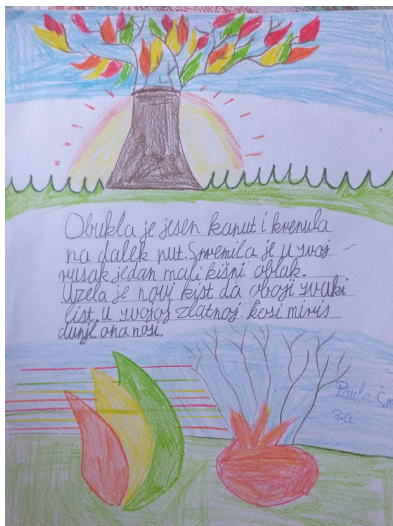 Obukla je jesen kaput i krenula
na dalek put. Spremila je u svoj
rusak jedan mali kišni oblak.
Uzela je novi kist da oboji svaki
list. U svojoj zlatnoj kosi miris
dunje ona nosi.
Paula
3.a